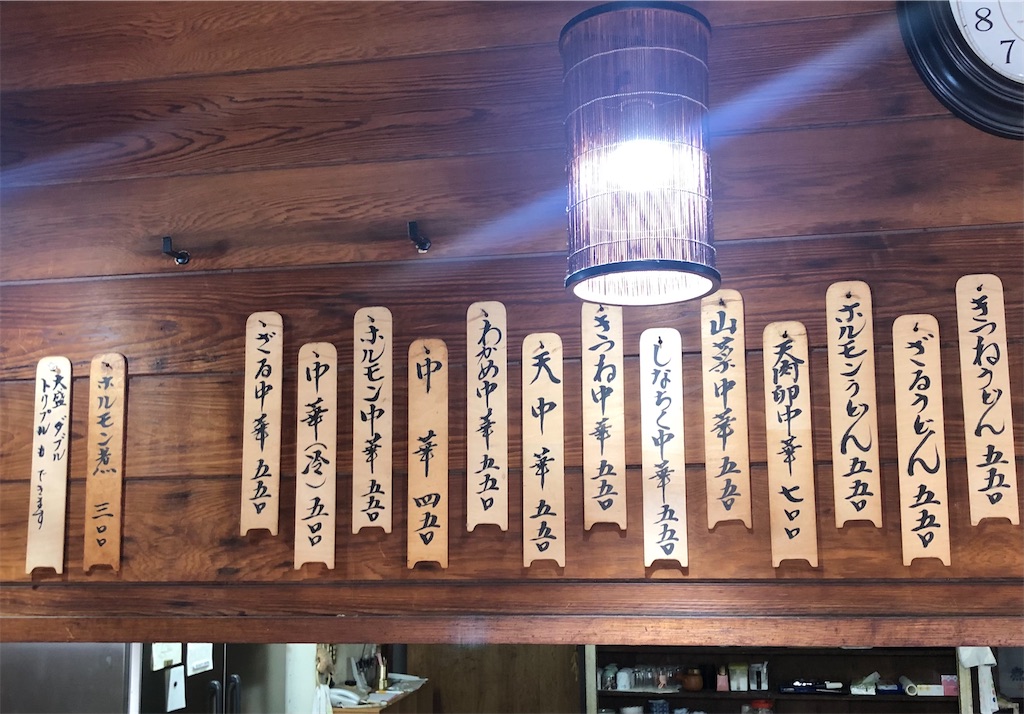 きつねうどん 五五〇
ざるうどん 五五〇
ホルモンうどん 五五〇
天卵中華 七〇〇
山菜中華 五五〇
しなちく中華 五五〇
きつね中華 五五〇
天中華 五五〇
わかめ中華 五五〇
中華 四五〇
ホルモン中華 五五〇
中華(冷)五〇〇
ざる中華 五五〇
ホルモン煮 三〇〇
大盛 ダブル
トリプルもできます
8
7